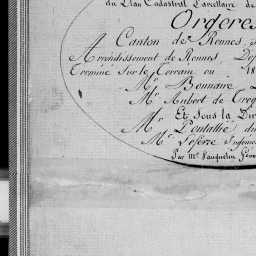 du Plan Cadastral Parcellaire de
Orgeres
Canton de Rennes
Arrondissement de Rennes Dép
Terminé sur le terrain au 18
Mr. Bonnaire
Mr. Aubert de Treg
Et Sous la Dir
Mr. Pontallié du
Mr. Lefevre Ingénie
Par Mr. Vauquelin Géom